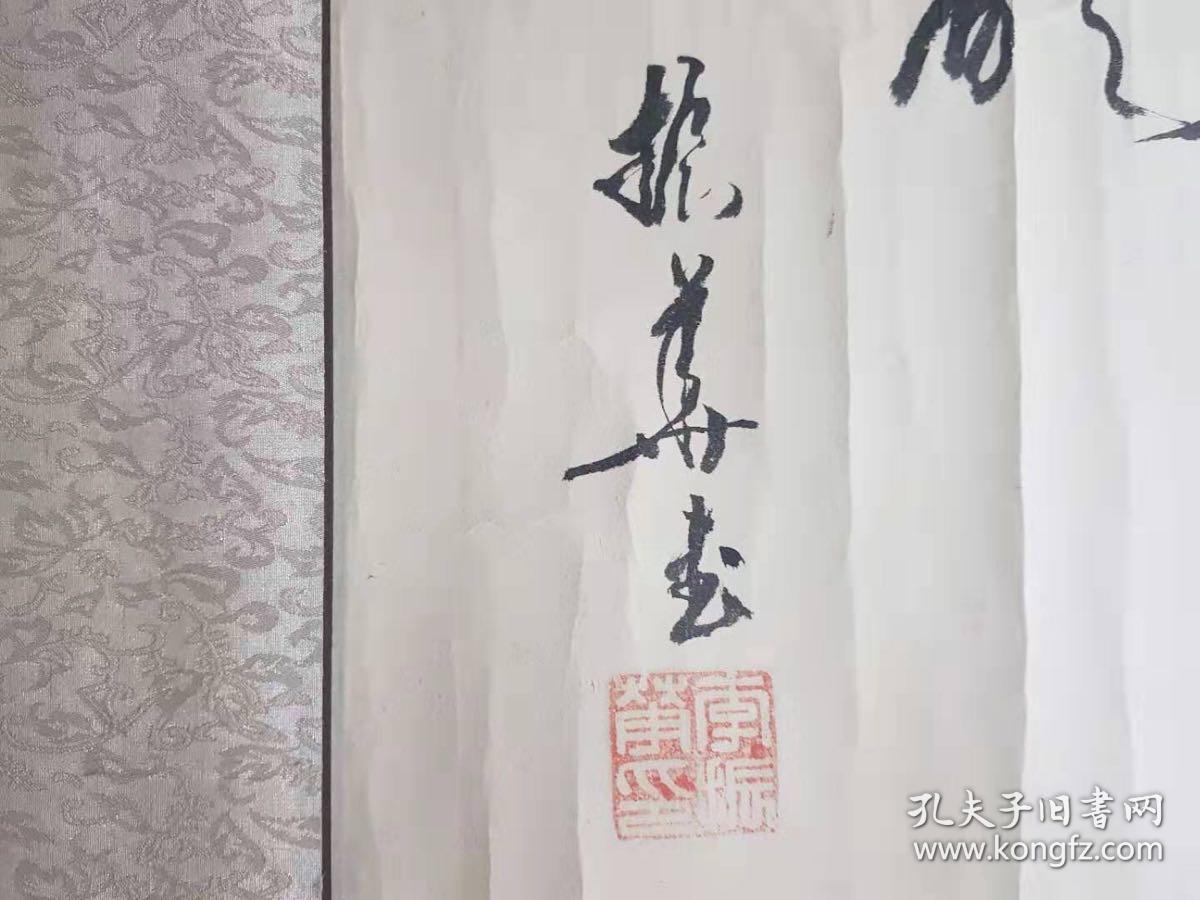 振華書
李振
華印
孔夫子旧书网
www.kongfz.com